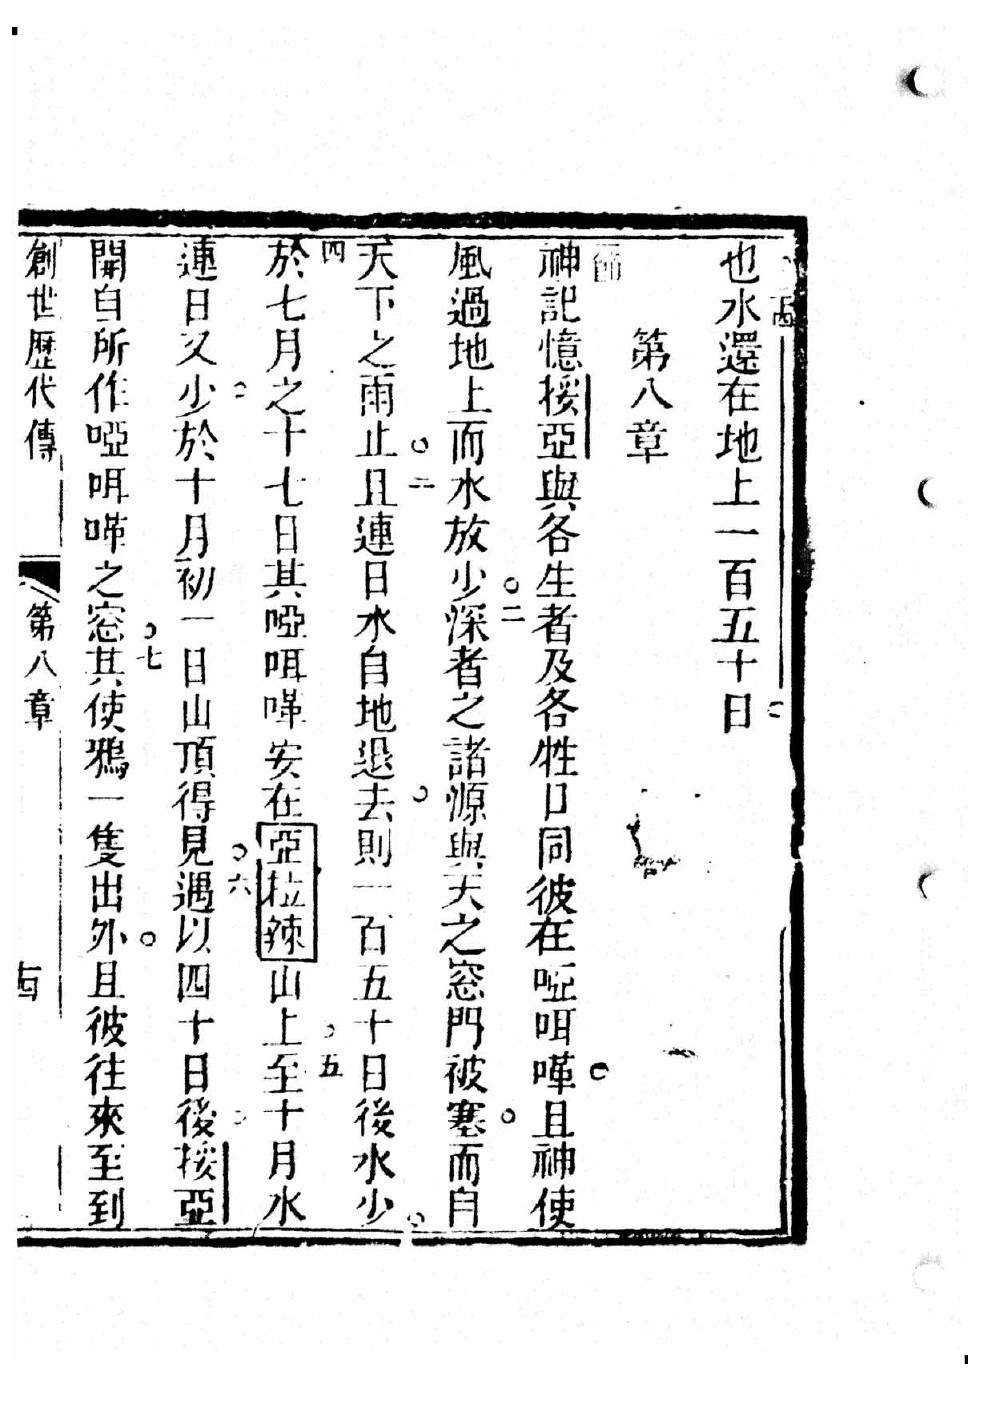 也水還在地上一百五十日
第八章
神記憶挼亞與各生者及各牲口同彼在啞咡嘩且神使
風過地上而水放少深者之諸源與天之窓門被塞而自
天下之雨止且連日水自地退去則一百五十日後水少
於七月之十七日其啞咡嘩安在亞拉辣山上至十月水
連日又少於十月初一日山頂得見遇以四十日後挼亞
開自所作啞咡嘩之窓其使鴉一隻出外且彼往來至到
創世歷代傳
第八章